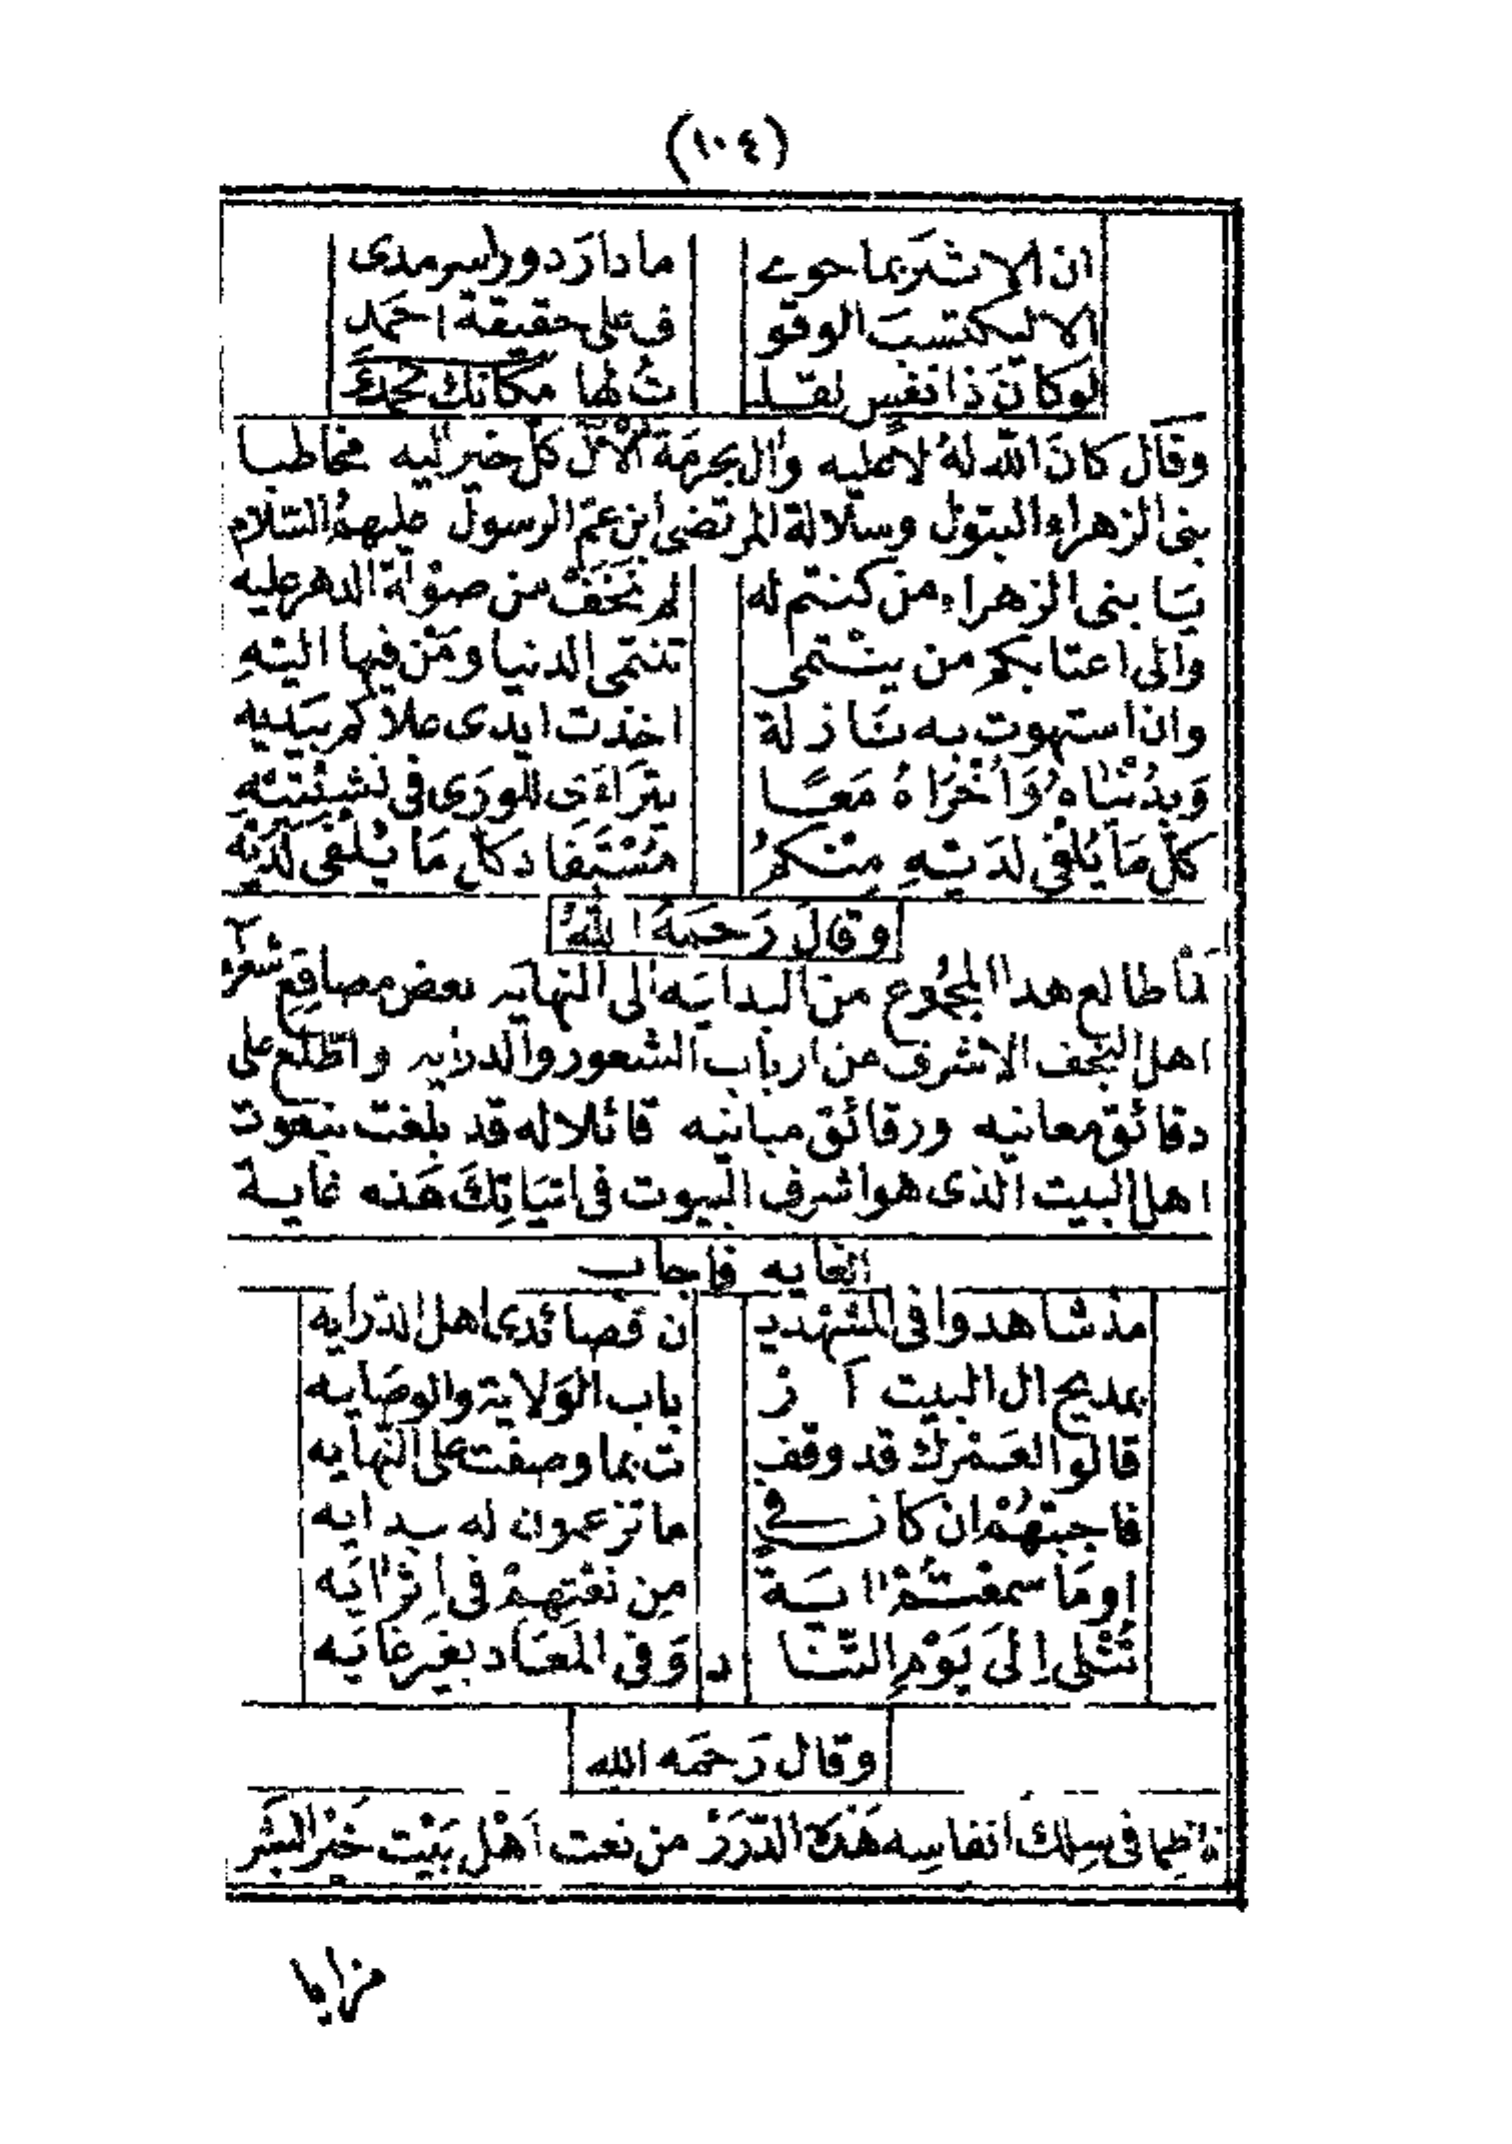 (١٠٤)
ان الاثير بما حوى ما دار دورا سرمدى
الا ليكتسب الوقو ف على حقيقة احمد
لوكانَ ذا نفس لقلـ تُ لها مكانك تحمدى
وقال كانَ الله لهُ لا عليه وأل بحرمَة الأل كل خير اليه مخاطبا
بنى الزهراء البتول وسلالة المرتضى ابن عمّ الرسول عليهمُ السّلام
يَا بنى الزهراء من كنتم له لم يَخَفْ من صوْلة الدهر عليه
والى اعتابكم من ينْتمى تنتمى الدنيا ومَنْ فيها اليْهِ
وان استهوت به نَازلة اخذت ايدى علاكم بيَديه
وَبِدُنْيَاهُ وَاُخْرَاهُ مَعًا يتَرَاءَى للورَى فى نشئتيْهِ
كلّ مَا يُلْفى لديْهِ مِنْكمُ مُسْتَفَاد كل مَا يُلْفى لدَيْه
وقالَ رَحمَهُ اللهُ
لمّا طالع هذا المجمُوع منَ البدايَه الى النهايَه بعض مصاقِع شعراء
اهل النجف الاشرف من ارباب الشعور والدرايه واطّلع على
دقائق معانيه ورقائق مبانيه قائلا له قد بلغت بنعوت
اهل البيت الذى هو اشرف البيوت فى ابيَاتِكَ هَذه غاية
الغايه فاجاب
مذ شاهدوا فى المشهديـ ن قصائدى اهل الدرايه
بمديح ال البيت ا رْ باب الوَلاية والوصَايه
قالوا لعَمْرك قد وقفـ ت بما وصفت على النّهايه
فاجبتهُمْ ان كان فى ما تزعمون له بدايه
اوَمَا سمعْتُمْ ايَةً مِن نعْتهِمْ فى اِثرْ ايَه
تُتْلى اِلىَ يَوْمِ التّنَا د وَفى المَعَاد بغَيرِ غايَه
وقال رَحمَه الله
ناظِما فى سِلك انفاسِه هَذه الدّرَرْ من نعت اَهْل بَيْت خَيْر البشَر
مزايا